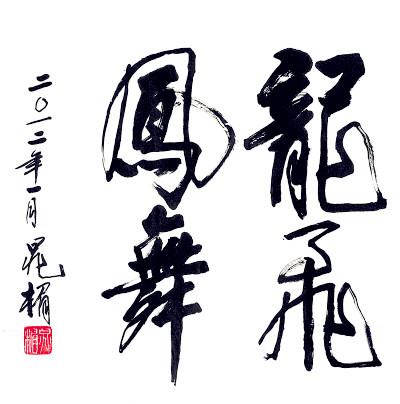 龍飛
鳳舞
二〇一二年一月晁楣